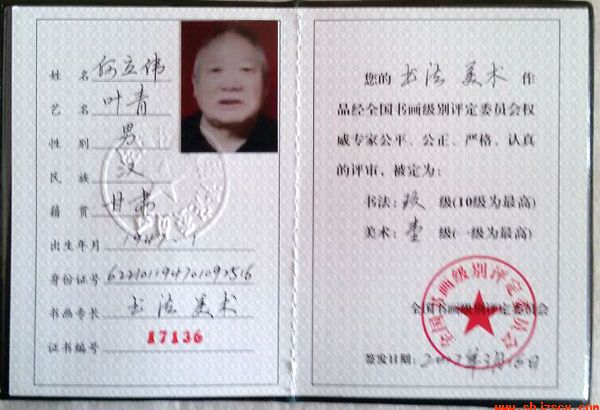 姓名 何立伟
艺名 叶青
性别 男
民族 汉
籍贯 甘肃
出生年月
身份证号
书画专长 书法 美术
证书编号 17136
您的 书法 美术 作
品经全国书画级别评定委员会权
威专家公平、公正、严格、认真
的评审，被定为：
书法：玖 级(10级为最高)
美术：壹 级(一级为最高)
全国书画级别评定委员会
全国书画级别评定委员会
签发日期：